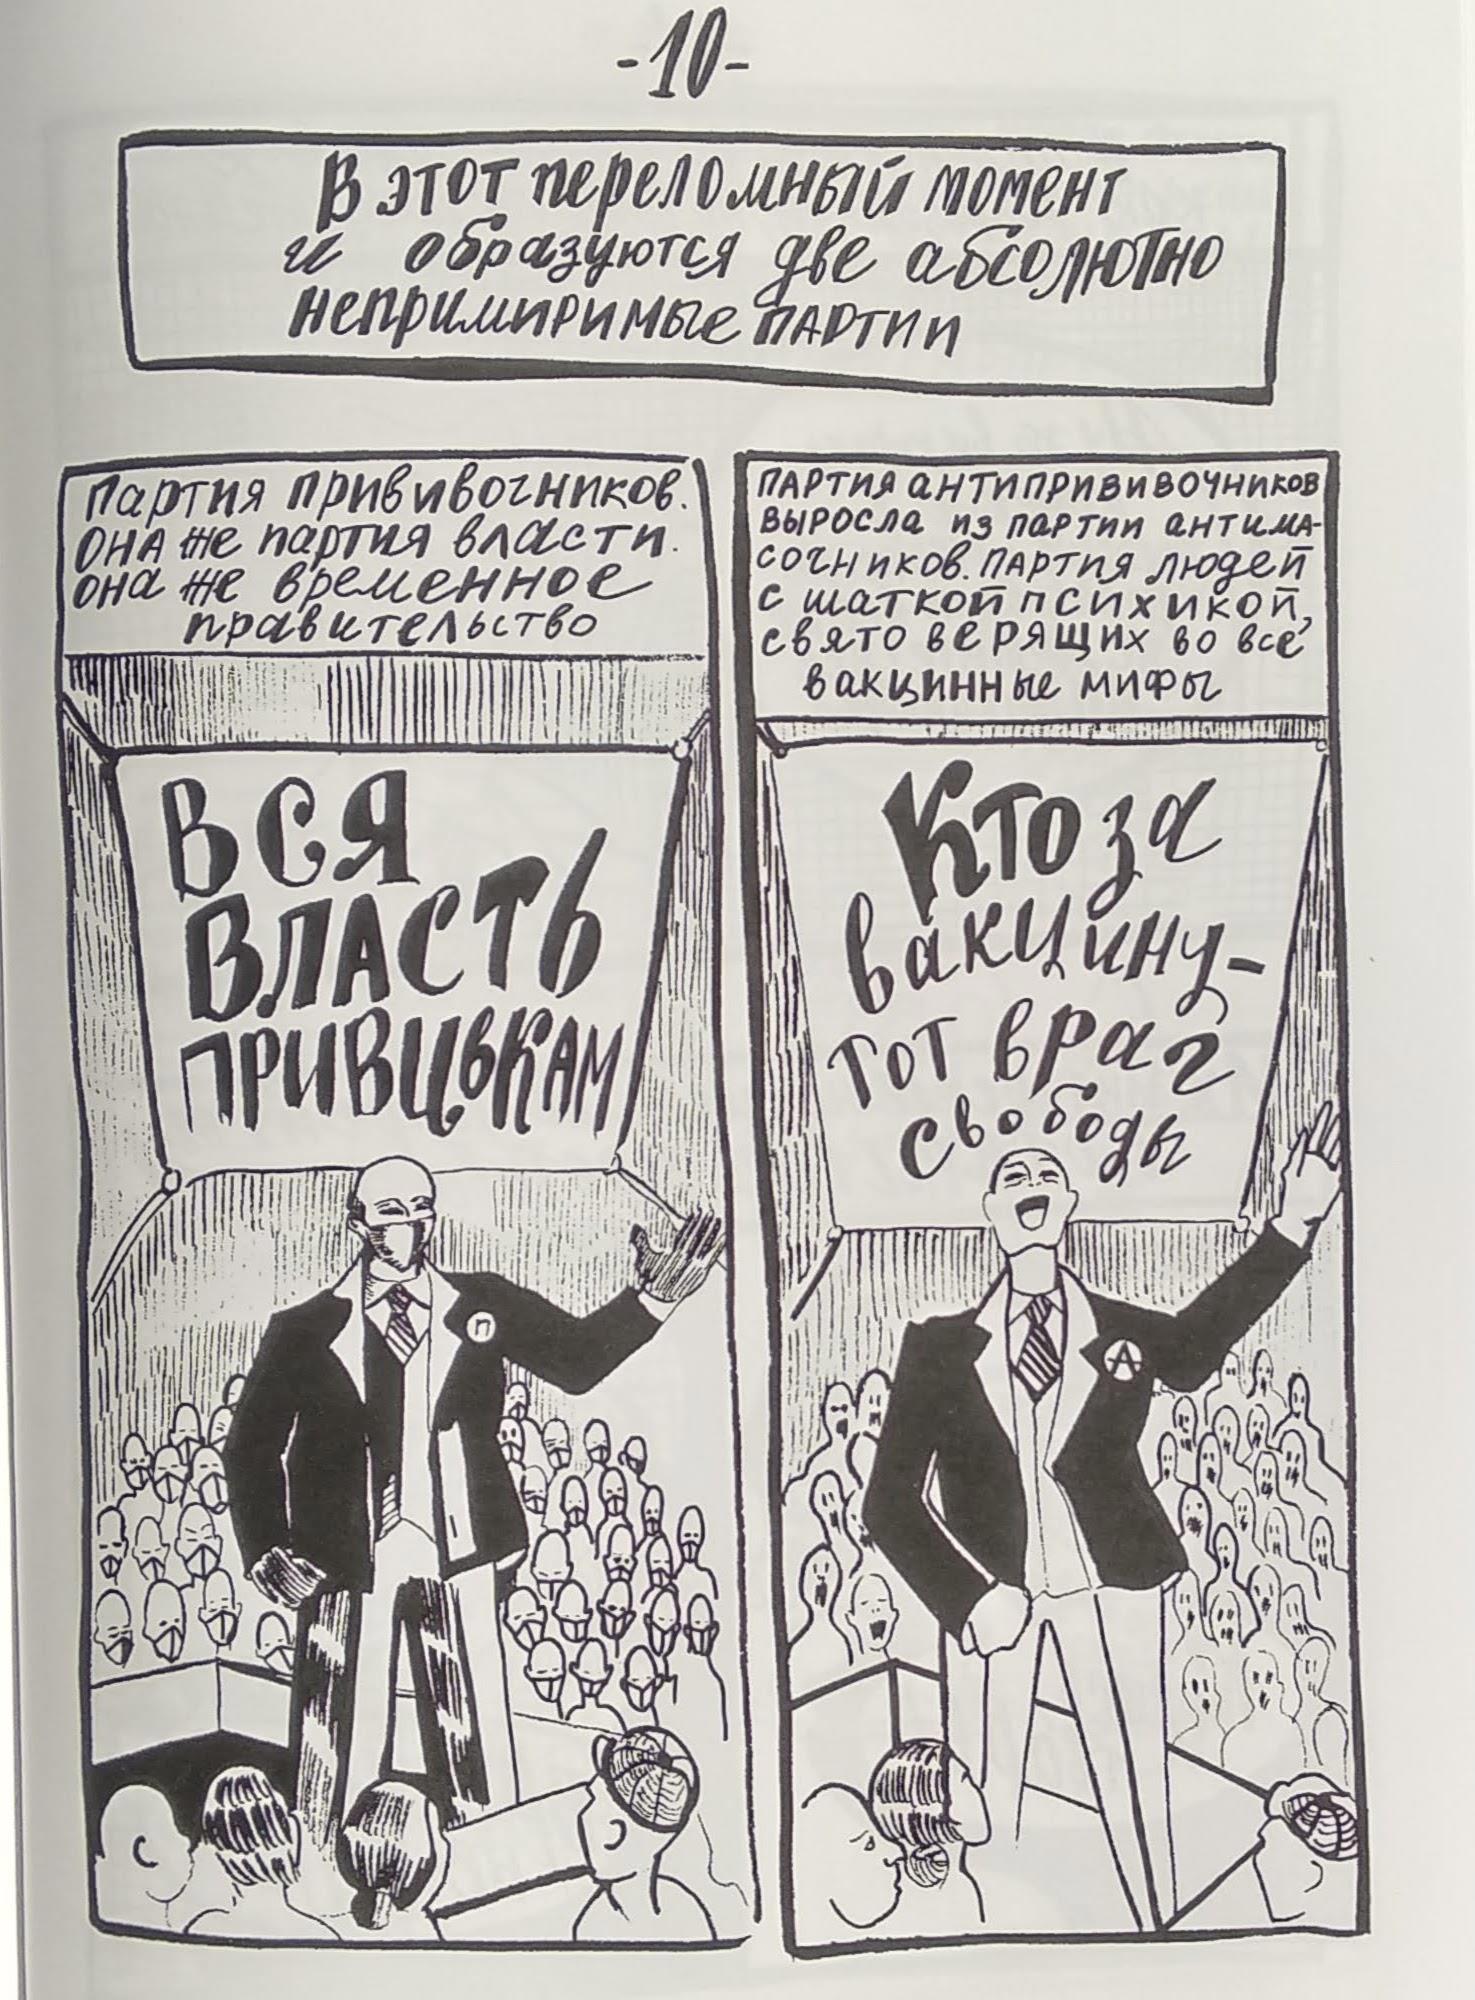 -10-
В этот переломный момент
и образуются две абсолютно
непримиримые партии
партия прививочников.
она же партия власти.
она же временное
правительство
ВСЯ
ВЛАСТЬ
ПРИВИВЦЫКАМ
п
партия антипрививочников
выросла из партии антима-
сочников. партия людей
с шаткой психикой,
свято верящих во все
вакцинные мифы
Кто за
вакцину-
тот враг
свободы
А